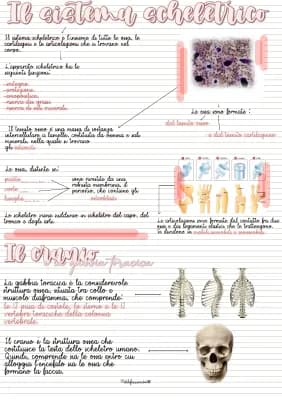 Il sistema scheletrico
Il sistema scheletrico è l'insieme di tutte le ossa, le
cartilagini e le articolazioni che si trovano nel
corpo.
L'apparato scheletrico ha le
seguenti funzioni:
sostegno
protezione
emopoietica
riserva dei grassi
riserva di sali minerali
Le ossa sono formate:
dal tessuto osseo
e dal tessuto cartilagineo
Il tessuto osseo è una massa di sostanza
intercellulare a lamelle, costituita da osseina e sali
minerali, nella quale si trovano
gli osteociti
Le ossa, distinte in:
piatte
corte
lunghe
sono rivestite da una
robusta membrana, il
periostio, che contiene gli
osteoblasti
Lo scheletro viene suddiviso in scheletro del capo, del
tronco e degli arti.
Le articolazioni sono formate dal contatto fra due
ossa e dai legamenti elastici che le trattengono.
Si dividono in mobili, semimobili e
Il cranio
gabbia toracica
La gabbia toracica è la considerevole
struttura ossea, situata tra collo e
muscolo diaframma, che comprende:
le 12 paia di costole, lo sterno e le 12
vertebre toraciche della colonna
vertebrale.
Il cranio è la struttura ossea che
costituisce la testa dello scheletro umano.
Quindi, comprende sia le ossa entro cui
alloggia l'encefalo sia le ossa che
formano la faccia.